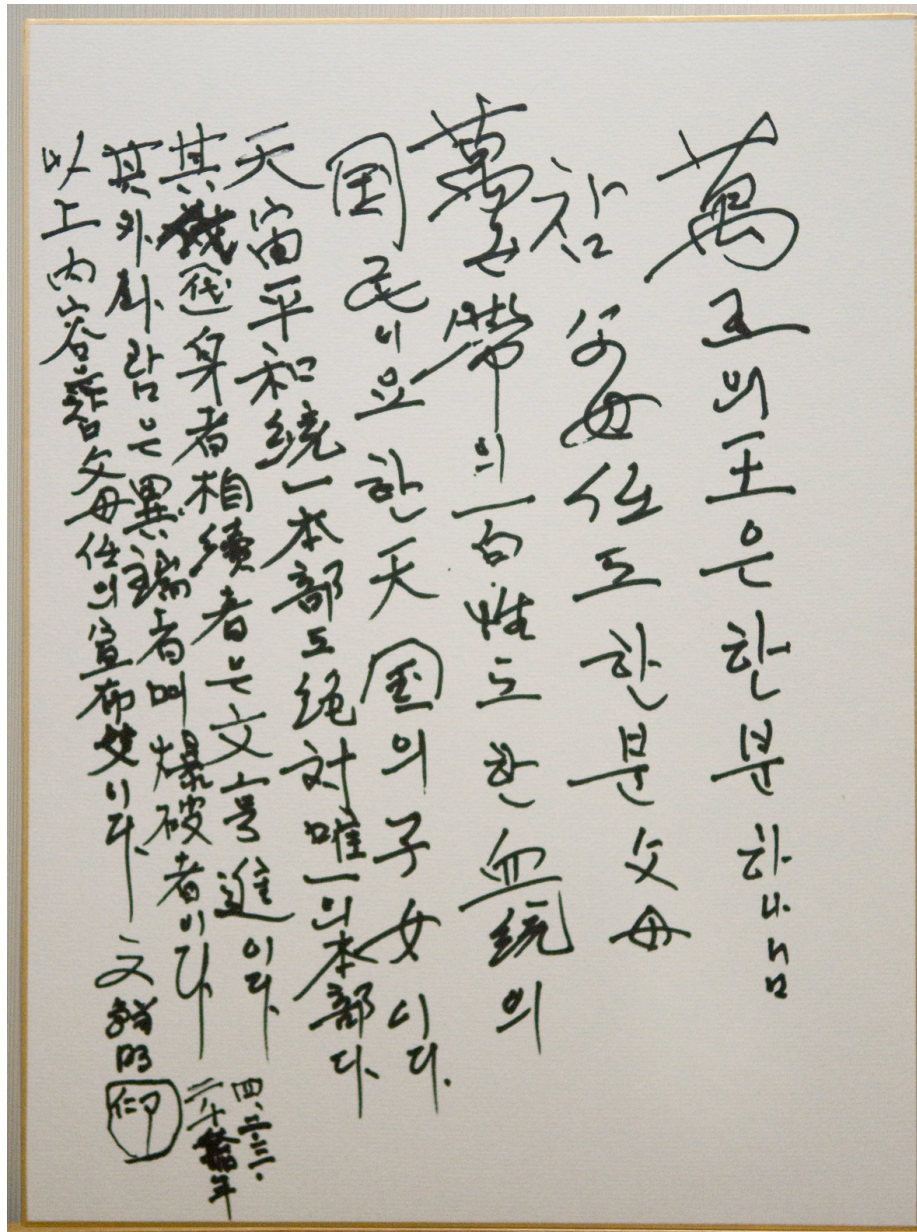 萬王의王은한분하나님
참父母任도한분父母
萬세帶의一白性도한血統의
国民이요한天国의子女이다.
天宙平和統一本部도絶対唯一의本部다.
其 身者相續者은文亨進이다.
其外사람은異端者며爆破者이다.
以上内容은참父母任의宣布文이다.
文鮮明
印
四.二.三.
二千 年